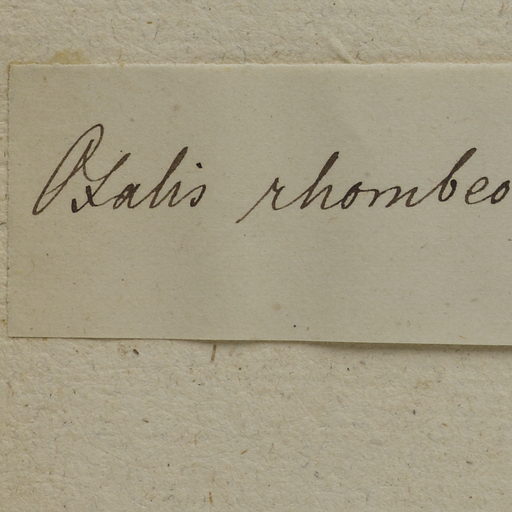 Oxalis rhombeo